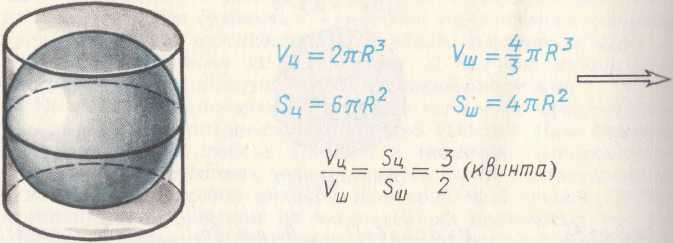 Vц = 2πR³ Vш = 4/3 πR³
Sц = 6πR² Sш = 4πR²
Vц/Vш = Sц/Sш = 3/2 (квинта)